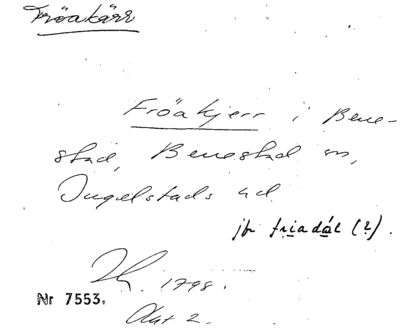 Fröakärr
Fröakjerr i Bene-
stad, Benestad sn,
Ingelstads hd
jfr friadál (?).
1798.
Nr 7553.
Akt 2.